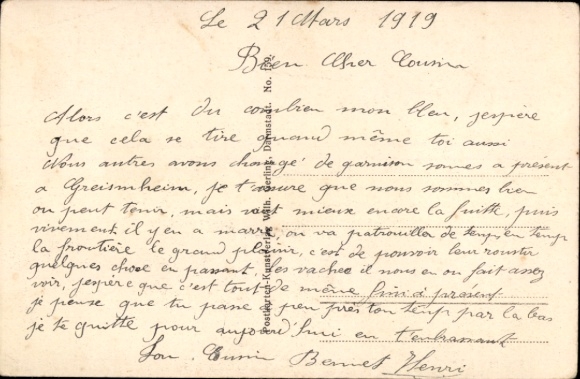 Le 21 Mars 1919
Bien Cher Cousin
Alors c'est du combien mon bleu, j'espère
que cela se tire quand même toi aussi
Nous autres avons changé de garnison somes a présent
a Greismheim, je t'assure que nous sommes bien
ou peut tenir, mais vaut mieux encore la fuitte, puis
vivement il y en a marre, on va patrouiller de temps en temps
la frontière le grand plaisir, c'est de pouvoir leur roustir
quelques chose en passant, ces vaches il nous en on fait assez
voir, j'espère que c'est tout de même fini a présent
je pense que tu passe a peu près ton temp par la bas
je te quitte pour aujourd'hui en t'enbrassant
Ton Cousin Henri
Postkarten-Kunstverlag Wilh. Gerling, Darmstadt. No. 159.